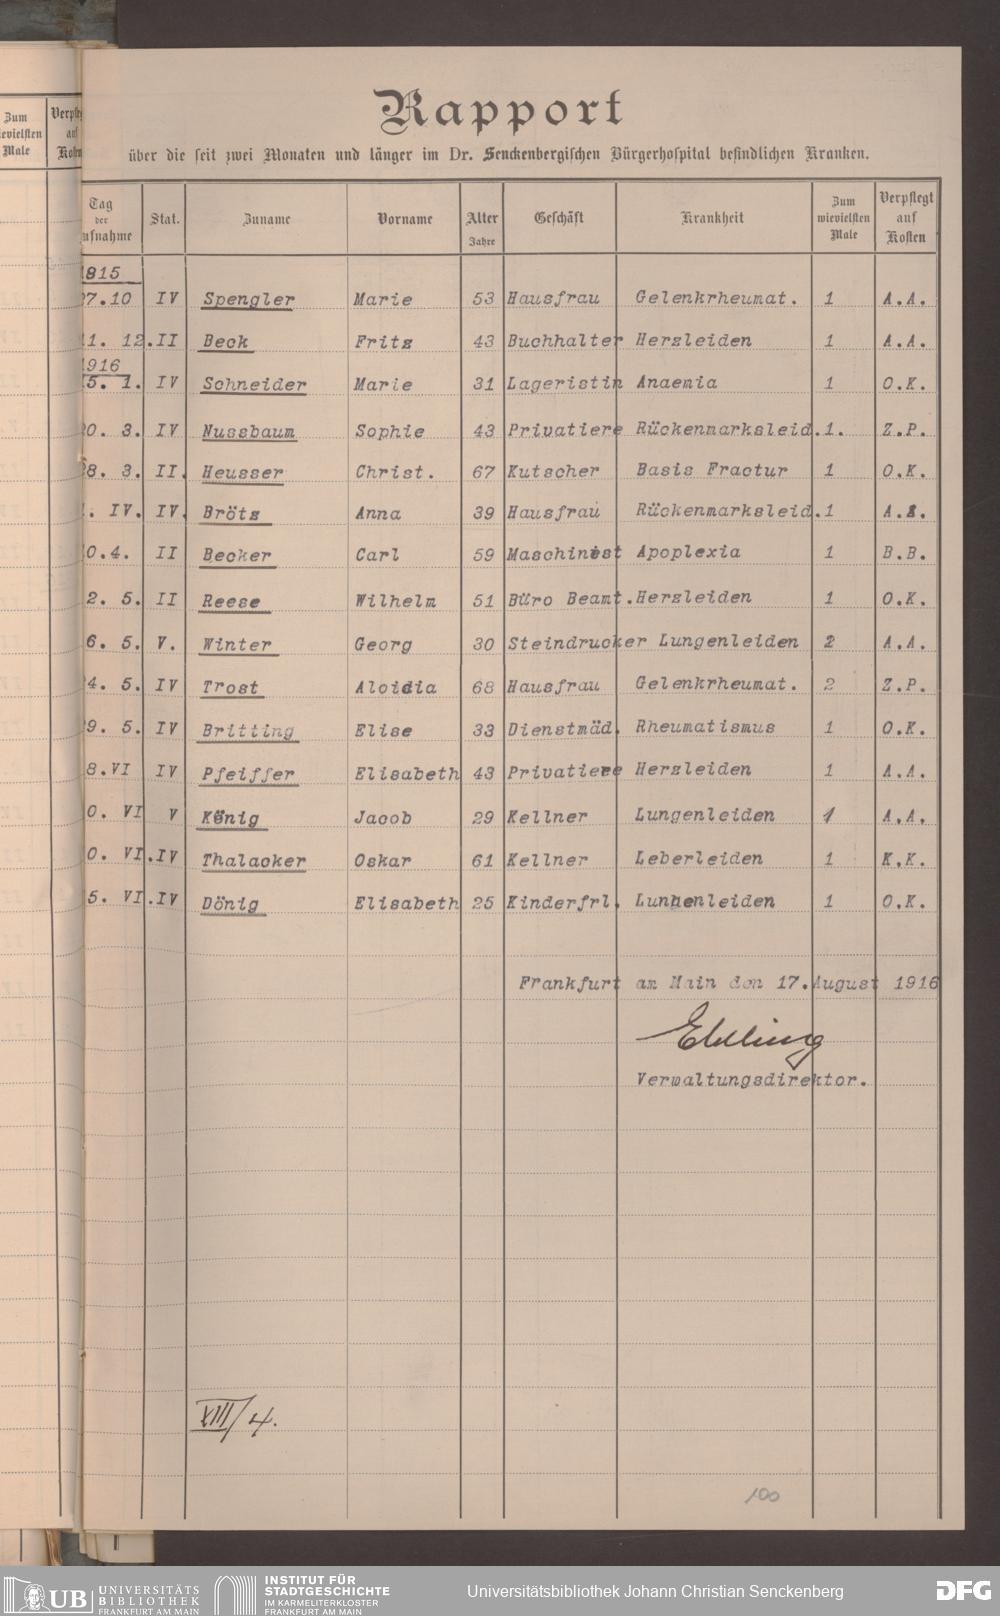 Zum
Male
Rapport
über die seit zwei Monaten und länger im Dr. Senckenbergischen Bürgerhospital befindlichen Kranken.
Tag der Stat. Zuname Vorname Alter Jahre Geschäft Krankheit Zum wievielsten Male Verpflegt auf Kosten
815
7.10 IV Spengler Marie 53 Hausfrau Gelenkrheumat. 1 A.A.
1. 12. II Beck Fritz 43 Buchhalter Herzleiden 1 A.A.
916
5. 1. IV Schneider Marie 31 Lageristin Anaemia 1 O.K.
0. 3. IV Nussbaum Sophie 43 Privatiere Rückenmarksleid. 1. Z.P.
8. 3. II. Heusser Christ. 67 Kutscher Basis Fractur 1 O.K.
. IV. IV. Brötz Anna 39 Hausfrau Rückenmarksleid. 1
0.4. II Becker Carl 59 Maschinist Apoplexia 1 B.B.
2. 5. II Reese Wilhelm 51 Büro Beamt. Herzleiden 1 O.K.
6. 5. V. Winter Georg 30 Steindrucker Lungenleiden 2 A.A.
4. 5. IV Trost Aloidia 68 Hausfrau Gelenkrheumat. 2 Z.P.
9. 5. IV Britting Elise 33 Dienstmäd. Rheumatismus 1 O.K.
8.VI IV Pfeiffer Elisabeth 43 Privatiere Herzleiden 1 A.A.
0. VI V König Jacob 29 Kellner Lungenleiden 1 A.A.
0. VI. IV Thalacker Oskar 61 Kellner Leberleiden 1 K.K.
5. VI. IV Dönig Elisabeth 25 Kinderfrl. Lunhenleiden 1 O.K.
Frankfurt am Main den 17. August 1916
Verwaltungsdirektor.
XIII/4.
100
UB UNIVERSITÄTS
BIBLIOTHEK
FRANKFURT AM MAIN
INSTITUT FÜR
STADTGESCHICHTE
IM KARMELITERKLOSTER
FRANKFURT AM MAIN
Universitätsbibliothek Johann Christian Senckenberg
DFG